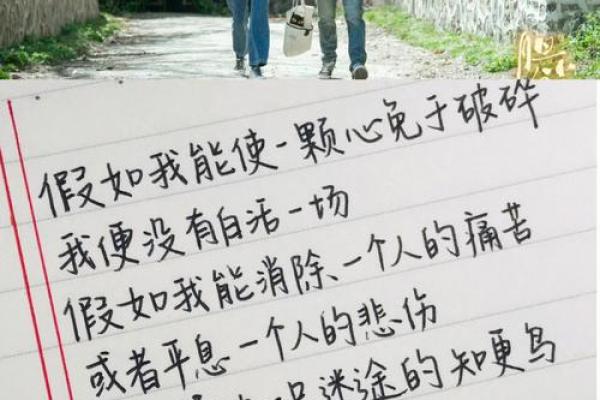 假如我能使一颗心免于破碎
我便没有白活一场
假如我能消除一个人的痛苦
或者平息一个人的悲伤
迷途的知更鸟